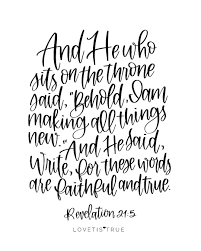 And He who
sits on the throne
said, "Behold, I am
making all things
new." And He said,
Write, for these words
are faithful and true.
Revelation 21:5
LOVETISTRUE